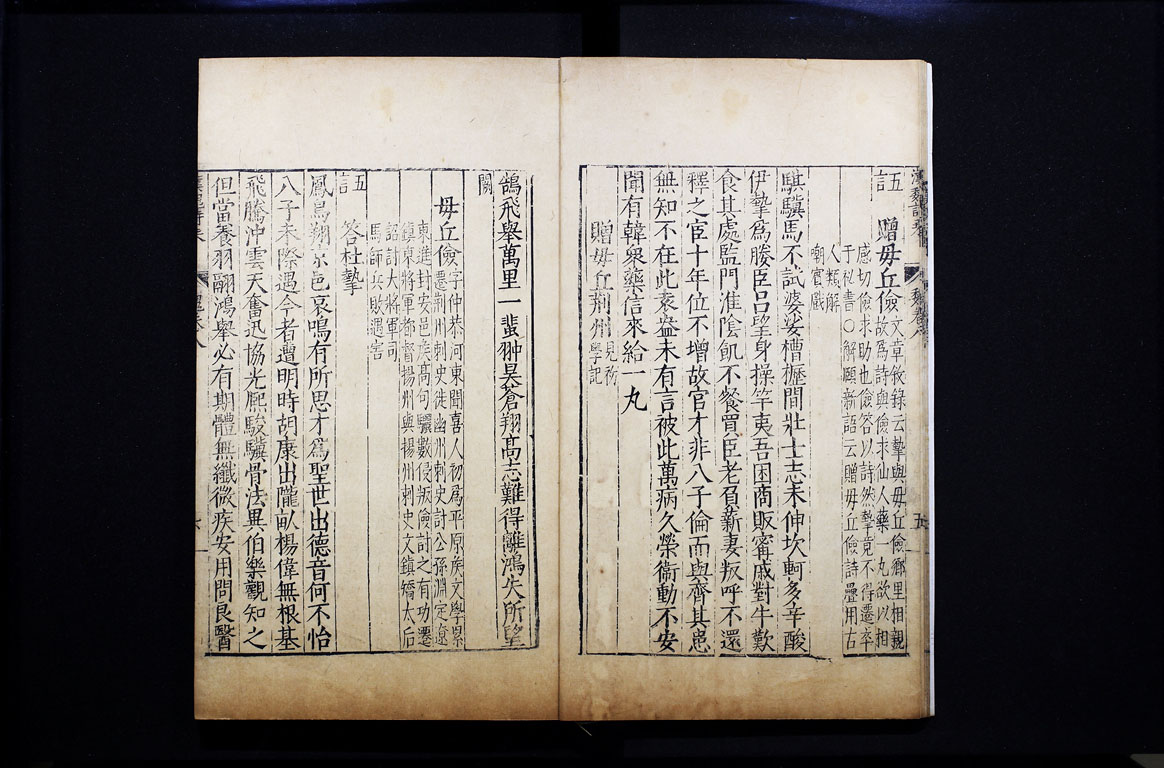 五言 贈毋丘儉
文章敘錄云摯與毋丘儉鄉里相親
故爲詩與儉求仙人藥一丸欲以相
感切儉求助也儉答以詩然摯竟不得遷卒
于秘書○解頤新語云贈毋丘儉詩疊用古
人類解
嘲賓戲
騏驥馬不試婆娑槽櫪間壯士志未伸坎軻多辛酸
伊摯爲媵臣呂望身操竿夷吾困商販甯戚對牛歎
食其處監門淮陰飢不餐買臣老負薪妻叛呼不還
釋之宦十年位不增故官才非八子倫而與齊其患
無知不在此袁盎未有言被此萬病久榮衞動不安
聞有韓衆藥信來給一丸
贈毋丘荆州見初學記
鵠飛舉萬里一蜚翀昊蒼翔高志難得離鴻失所望
闕
毋丘儉
字仲恭河東聞喜人初爲平原矦文學累
遷荆州刺史徙幽州刺史討公孫淵定遼
東進封安邑矦高句驪數侵叛儉討之有功遷
鎮東將軍都督揚州與揚州刺史文鎮矯太后
詔討大將軍司
馬師兵敗遇害
五言 答杜摯
鳳鳥翔京邑哀鳴有所思才爲聖世出德音何不怡
八子未際遇今者遭明時胡康出隴畝楊偉無根基
飛騰沖雲天奮迅協光熙駿驥骨法異伯樂觀知之
但當養羽翮鴻舉必有期體無纖微疾安用問良醫